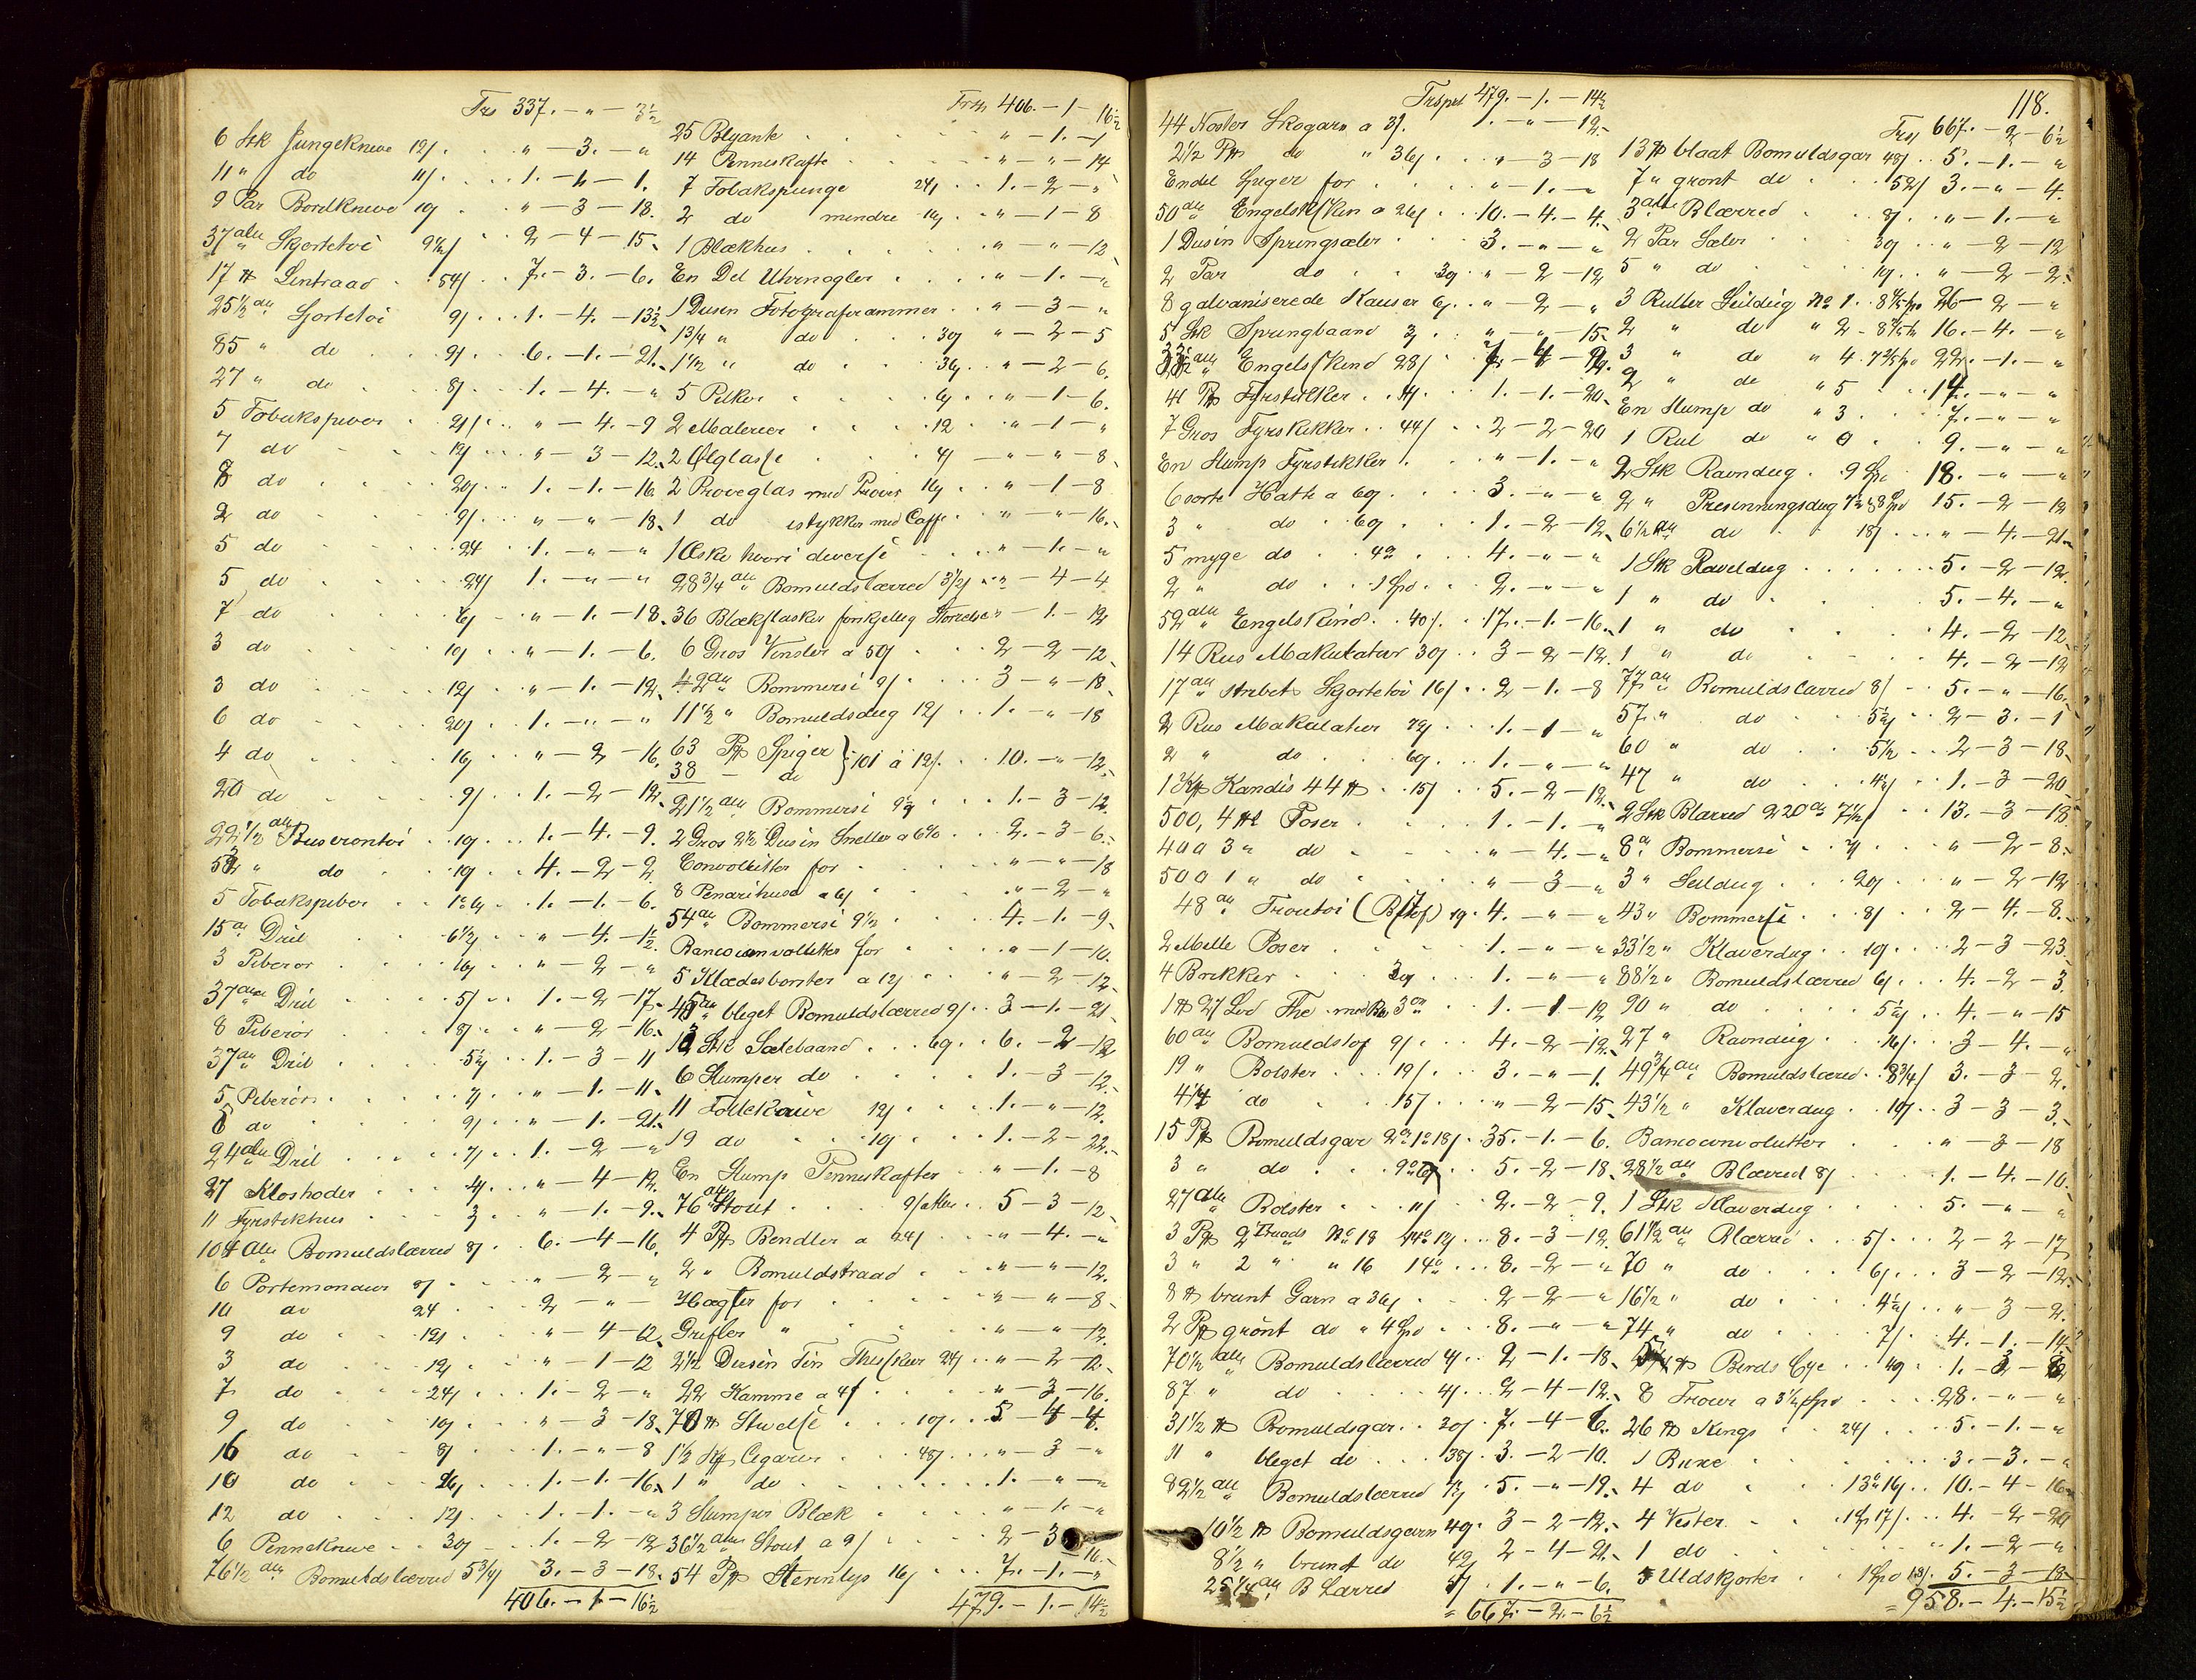 Trs 337. - " - 3½
6 Stk Jungeknive 12/ . " - 3. - "
11 " do 11/ . . 1. - " - 1.
9 Par Bordknive 10/ . " - 3 - 18.
37 alu Skjortetøi 9½/ . . 2 - 4 - 15.
17 ℔ Lintraad . 54/ . . 7. - 3. - 6.
25½ alu Sjortetøi 9/ . . 1. - 4. - 13½
85 " do . . 9/ . . 6. - 1. - 21.
27 " do . . 8/ . . 1. - 4. - "
5 Tobakspiber . 21/ . . " - 4. - 9
7 do . . 12/ . . " - 3 - 12.
8 do . . 20/ . . 1. - 1. - 16.
2 do . . 9/ . . " - " - 18.
5 do . . 24 . . 1. - " - "
5 do . . 24/ . . 1. - " - "
7 do . . 6/ . . " - 1. - 18.
3 do . . 10/ . . " - 1. - 6.
3 do . . 12/ . . " - 1. - 12.
6 do . . 20/ . . 1. - " - "
4 do . . 16/ . . " - 2 - 16.
20 do . . 9/ . . 1. - 2 - 12.
22½ alu Buserontøi . 10/ . . 1. - 4. - 9.
53 " do . 10/ . . 4. - 2 - 2
5 Tobakspiber . . 1. - 1. - 6.
15 al Dril . . 6½/ . . " - 4. - 1½.
3 Piberør . . 16/ . . " - 2 - "
37 alu Dril . . 5/ . . 1. - 2 - 17.
8 Piberør . . 8/ . . " - 2 - 16.
37 au Dril . . 5½/ . . 1. - 3 - 11
5 Piberør . . 7/ . . " - 1. - 11.
5 do . . 9/ . . " - 1. - 21.
24 alu Dril . . 7/ . . 1. - 2 - "
27 Kloshoder . . 4/ . . " - 4 - 12.
11 Fyrstikhus . . 3 . . " - 1. - 9.
104 alu Bomuldslærred 8/ . . 6. - 4 - 16.
6 Portemonaier 8/ . . " - 2 - "
10 do 24 . . 2 - " - "
9 do . . 12/ . . " - 4 - 12.
3 do . . 12/ . . " - 1 - 12
7 do . . 24/ . . 1. - 2 - "
9 do . . 10/ . . " - 3 - 18.
16 do . . 8/ . . 1. - " - 8
10 do . . 16/ . . 1. - 1. - 16.
12 do . . 12/ . . 1. - 1. - "
6 Penneknive . . 30/ . . 1. - 2 - 12
76½ alu Bomuldslærred 5¾/ 3. - 3 - 18.
406. - 1 - 16½
Trsp 406. - 1 - 16½
25 Blyante . . " - 1. - 1
14 Penneskafte . . " - " - 14
7 Tobakspunge 24/ . . 1. - 2 - "
2 do mindre 16/ . . " - 1 - 8
1 Blækhus . . " - " - 12
En Del Uhrnøgler . . " - 1. - "
1 Dusin Fotografirammer . . " - 3 - "
1¾ " do . 30/ " - 2 - 5
1½ " do . . 36/ . . " - 2 - 6.
5 Pilker . . 6/ . . " - 1 - 6.
2 Malerier . . 12 . . " - 1 - "
2 Ølglasse . . 4/ - " - " - 8
2 Prøveglas med Prøver 16/ . . " - 1 - 8
1 do istykker med Caffe . . " - " - 16.
1 Æske hvori diverse . . " - 1. - "
28¾ au Bomuldslærred 3½/ . " - 4 - 4
36 Blækflasker forskjellig Størrelse " - 1. - 12
6 Gros Vinsler a 50/ . . 2 - 2 - 12
42 au Bommersi 9/ . . 3 - " - 18
11½ " Bomuldsdug 12/ . . 1. - " - 18
63 ℔ Spiger } 101 à 12/ . . 10. - " - 12.
38 - do
21½ alu Bommersi 9/ . . 1. - 3 - 12
2 Gros 2½ Dusin Sneller a 60/ . . 2. - 3 - 6.
Convolutter for . . " - " - 18
8 Penarihuse a 6/ . . " - 2 - "
54 au Bommersi 9½ . . 4. - 1. - 9.
Bancoconvolutter for . . " - 1 - 10.
5 Klædesbørster a 12/ . . " - 2 - 12
45 au bleget Bomuldslærred 9/ . . 3 - 1. - 21
13 Stk Salebaand . . 60/ . . 6. - 2 - 12
6 Stumper do . . 1. - 3 - 12.
11 Follekniive 12/ . . 1. - " - 12.
19 do . . 10/ . . 1. - 2 - 22.
En Slump Penneskafter . . " - 1. - 8
76 alu Stout . . 9/ Alen . . 5 - 3 - 12
4 ℔ Bendler a 24/ . . " - 4. - "
2 " Bomuldstraad . . " - " - 12.
Hægter for . . " - " - 8
Grifler " . . " - " - 12.
2½ Dusin Tin Theskeer 24/ . . " - 2 - 12.
22 Kamme a 4/ . . " - 3 - 16.
70 ℔ Stivelse . . 10/ . . 5 - 4 - 4.
1½ K℔ Cigarer . . 48/ . . " - 3 - "
1 " do . . 1. - " - "
3 Slumper Blæk . . " - 1. - "
36½ alu Stout a 9/ . . 2 - 3 - 16.
54 ℔ Sterinlys 16/ . . 7. - 1. - "
479. - 1. - 14½
118.
Trsprt 479. - 1. - 14½
44 Noster Skogarn a 3/. 1. - " - 12.
2½ ℔ do " 36/ . . " - 3 - 18
Endel Spiger for . . " - 1. - "
50 alu Engelskskin a 26/ . . 10. - 4. - 4.
1 Dusin Springsæler . . 3. - " - "
2 Par do . . 30/ . " - 2 - 12
8 galvaniserede Kauser 6/ . . " - 2 - "
5 Stk Springbaand 3/ . . " - " - 15.
Engelsskind 28/
41 ℔ Fyrstikker . . 1. - 1. - 20.
7 Gros Fyrstikker . . 44/ . . 2 - 2 - 20
En Slump Fyrstikker . . " - 1. - "
6 sorte Hatte a 60/ . . 3. - " - "
3 " do . 60/ . . 1. - 2 - 12.
5 myge do . . . . 4. - " - "
2 " do . . 1 Spd . . 2. - " - "
52 alu Engelskind . . 40/ . . 17. - 1. - 16.
14 Rus Makulatur 30/ . . 3 - 2 - 12.
17 au stribet Skjortetøi 16/ . . 2 - 1. - 8
2 Rus Makulatur 72/ . . 1. - 1 - "
2 " do . . 60/ . . 1. - " - "
1 K℔ Kandis 44 ℔ . . 15/ . . 5. - 2 - 12.
500, 4 ℔ Poser . . 1. - 1. - "
400 3 " do . . " - 4. - "
500 1 " do . . " - 3 - "
48 au Troutøi . . 4. - " - "
2 Mille Poser . . 1. - " - "
4 Brikker . . 30/ . . 1. - " - "
1 ℔ 27 Lod The . . . 1. - 1 - 12
60 au Bomuldstof 9/ . . 4. - 2 - 12.
19 " Bolster . . 19/ . . 3. - " - 1.
4¼ do . . 15/ . . " - 2 - 15.
15 ℔ Bomuldsgar . . 35. - 1. - 6.
3 " do . . . . 5. - 2 - 18.
27 alu Bolster . . 11/ . . 2. - 2 - 9.
3 ℔ 2 Traads No 18 . . 8. - 3 - 12.
3 " 2 " " 16 14 . . 8. - 2 - "
8 ℔ brunt Garn a 36/ . . 2 - 2 - "
2 ℔ grønt do " 4 Spd . . 8. - " - "
70½ alu Bomuldslærred 4/ . . 2 - 1. - 18.
87 " do . . 4/ . . 2 - 4 - 12.
31½ ℔ Bomuldsgar . . 30/ . . 7. - 4 - 6.
11 " bleget do . . 38/ . . 3. - 2 - 10.
82½ alu Bomuldslærred . . 5. - " - 19.
10½ ℔ Bomuldsgarn 40/ . 3 - 2 - 12.
8½ " brunt do 42/ 2 - 4 - 21.
25¼ au B Lærred 5/ . 1. - " - 6.
= 667. - 2. - 6½
Trsp 667. - 2 - 6½
13 ℔ blaat Bomuldsgar 48/ . . 5. - 1. - "
7 " grønt do . . 52/ 3. - " - 4.
3 alu Blærred . . 8/ . . " - 1. - "
2 Par Sæler . . 30/ . . " - 2 - 12
5 " do . . 10/ . . " - 2 - 2.
3 Ruller Seildug No 1. . 26 - 2 - "
2 " do " 2 - 16. - 4. - "
3 " do " 4. 22. - 1. - "
2 " do " 5 . . 14. - " - "
En Slump do " 3 . . 7. - " - "
1 Rul do " 0 . . 9. - " - "
2 Stk Ravndug . . 9 Spd 18. - " - "
2 " Presenningsdug 15. - 2 - 12
6½ au do . . 18/ . . " - 4. - 21.
1 Stk Raveldug . . 5. - 2 - 12.
1 " do . . 5. - 4. - "
1 " do . . 4. - 2 - 12.
1 " do . . 4. - 2 - 12
77 au Bomuldslærred 8/ . . 5. - " - 16.
57 " do . . 5½/ . . 2 - 3. - 1
60 " do . . 5½ . . 2 - 3 - 18.
47 " do . . 4½/ . . 1. - 3 - 20
2 Stk Blærred 220 au 7½/ . . 13. - 3 - 18
8 a Bommersi . . 7/ . . " - 2 - 8.
3 " Seildug . . 20/ . . " - 2 - 12
43 " Bommersi . . 8/ . . 2 - 4. - 8.
33½ " Klaverdug . . 10/ . . 2 - 3 - 23
88½ " Bomuldslærred 6/ . . 4. - 2 - 3.
90 " do . . 5½/ . . 4. - " - 15
27 " Ravndug . . 16/ . . 3 - 4. - "
49¾ au Bomuldslærred . . 8¾/ 3. - 3 - 2.
43½ " Klaverdug . . 10/ . . 3 - 3 - 3.
Bancoconvolutter . . " - 3 - 18
28½ au Blærred 8/ . . 1. - 4. - 10.
1 Stk Klaverdug . . 5. - " - "
61½ au Blærred . . 5/ . . 2 - 2 - 17
70 " do . . 6/ . . 3 - 2 - 12.
16½ " do . . 4½/ . . " - 3 - 2.
74 " do . . 7/ . . 4. - 1. - 14.
℔ Birds Eye . . 40/ . . 1. - 3 -
8 Trøier a 3½ Spd . . 28. - " - "
26 ℔ Kings . . 24/ . . 5. - 1. - "
1 Buxe . . 3. - 3. - "
4 do . . 10. - 4 - 16
4 Vester . . 4. - 2 - 20
1 do . . 1. - 2 - "
5 Uldskjorter . . 1 Spd 18/. 5. - 3 - 18
= 958. - 4. - 15½